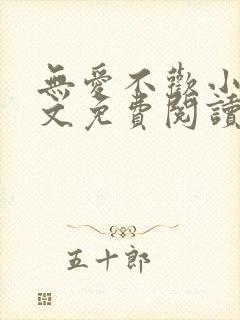 無愛不歡小
文免費閱讀
五十郎